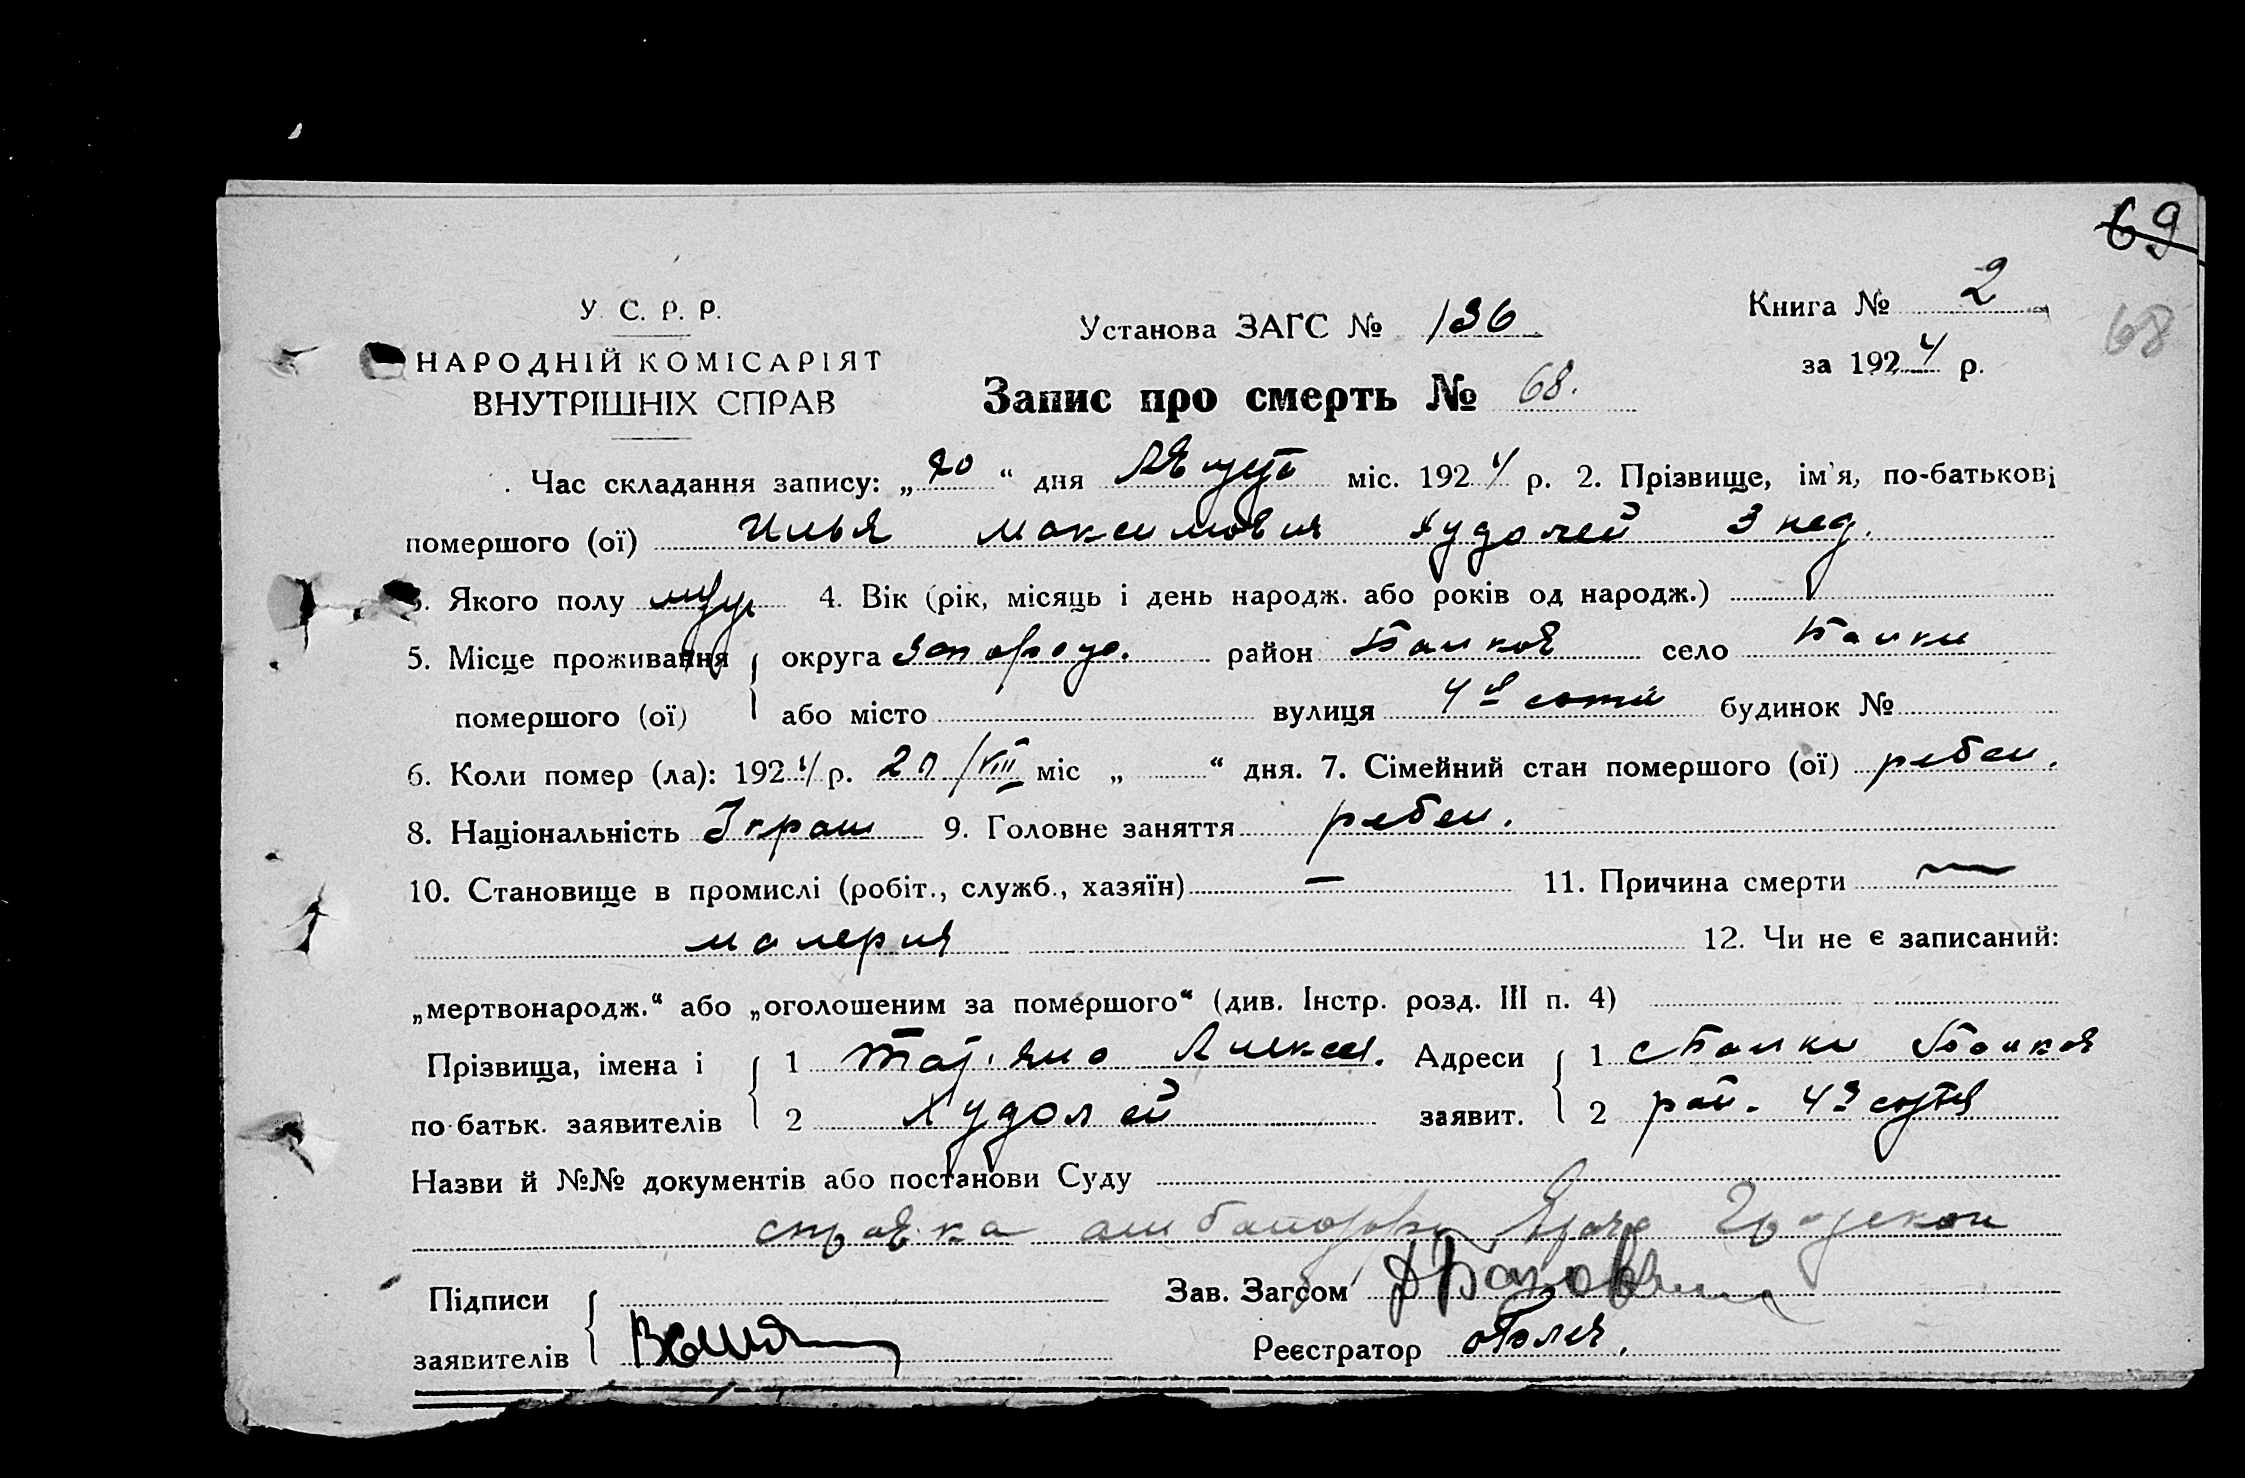 69
68
У. С. Р. Р.
НАРОДНІЙ КОМІСАРІЯТ
ВНУТРІШНІХ СПРАВ
Установа ЗАГС № 136
Запис про смерть № 68.
Книга № 2
за 1924 р.
Час складання запису: „20“ дня Август міс. 1924 р. 2. Прізвище, ім'я, по-батькові
помершого (ої) Илья Максимовия Худолей 3 нед.
3. Якого полу муж 4. Вік (рік, місяць і день народж. або років од народж.)
5. Місце проживання округа Запорож. район Балков село Балки
помершого (ої) або місто вулиця 4й сотни будинок №
6. Коли помер (ла): 1924 р. 20/VIII міс „ “ дня. 7. Сімейний стан помершого (ої) ребен.
8. Національність Украин 9. Головне заняття ребен.
10. Становище в промислі (робіт., служб., хазяїн) — 11. Причина смерти —
малерия 12. Чи не є записаний:
„мертвонародж.“ або „оголошеним за помершого“ (див. Інстр. розд. III п. 4)
Прізвища, імена і 1 Алексей. Адреси 1 с Балки Балков
по-батьк. заявителів 2 Худолей заявит. 2 рай. 4я сотня
Назви й №№ документів або постанови Суду
справка амбалатори врача
Підписи Зав. Загсом
заявителів Реєстратор